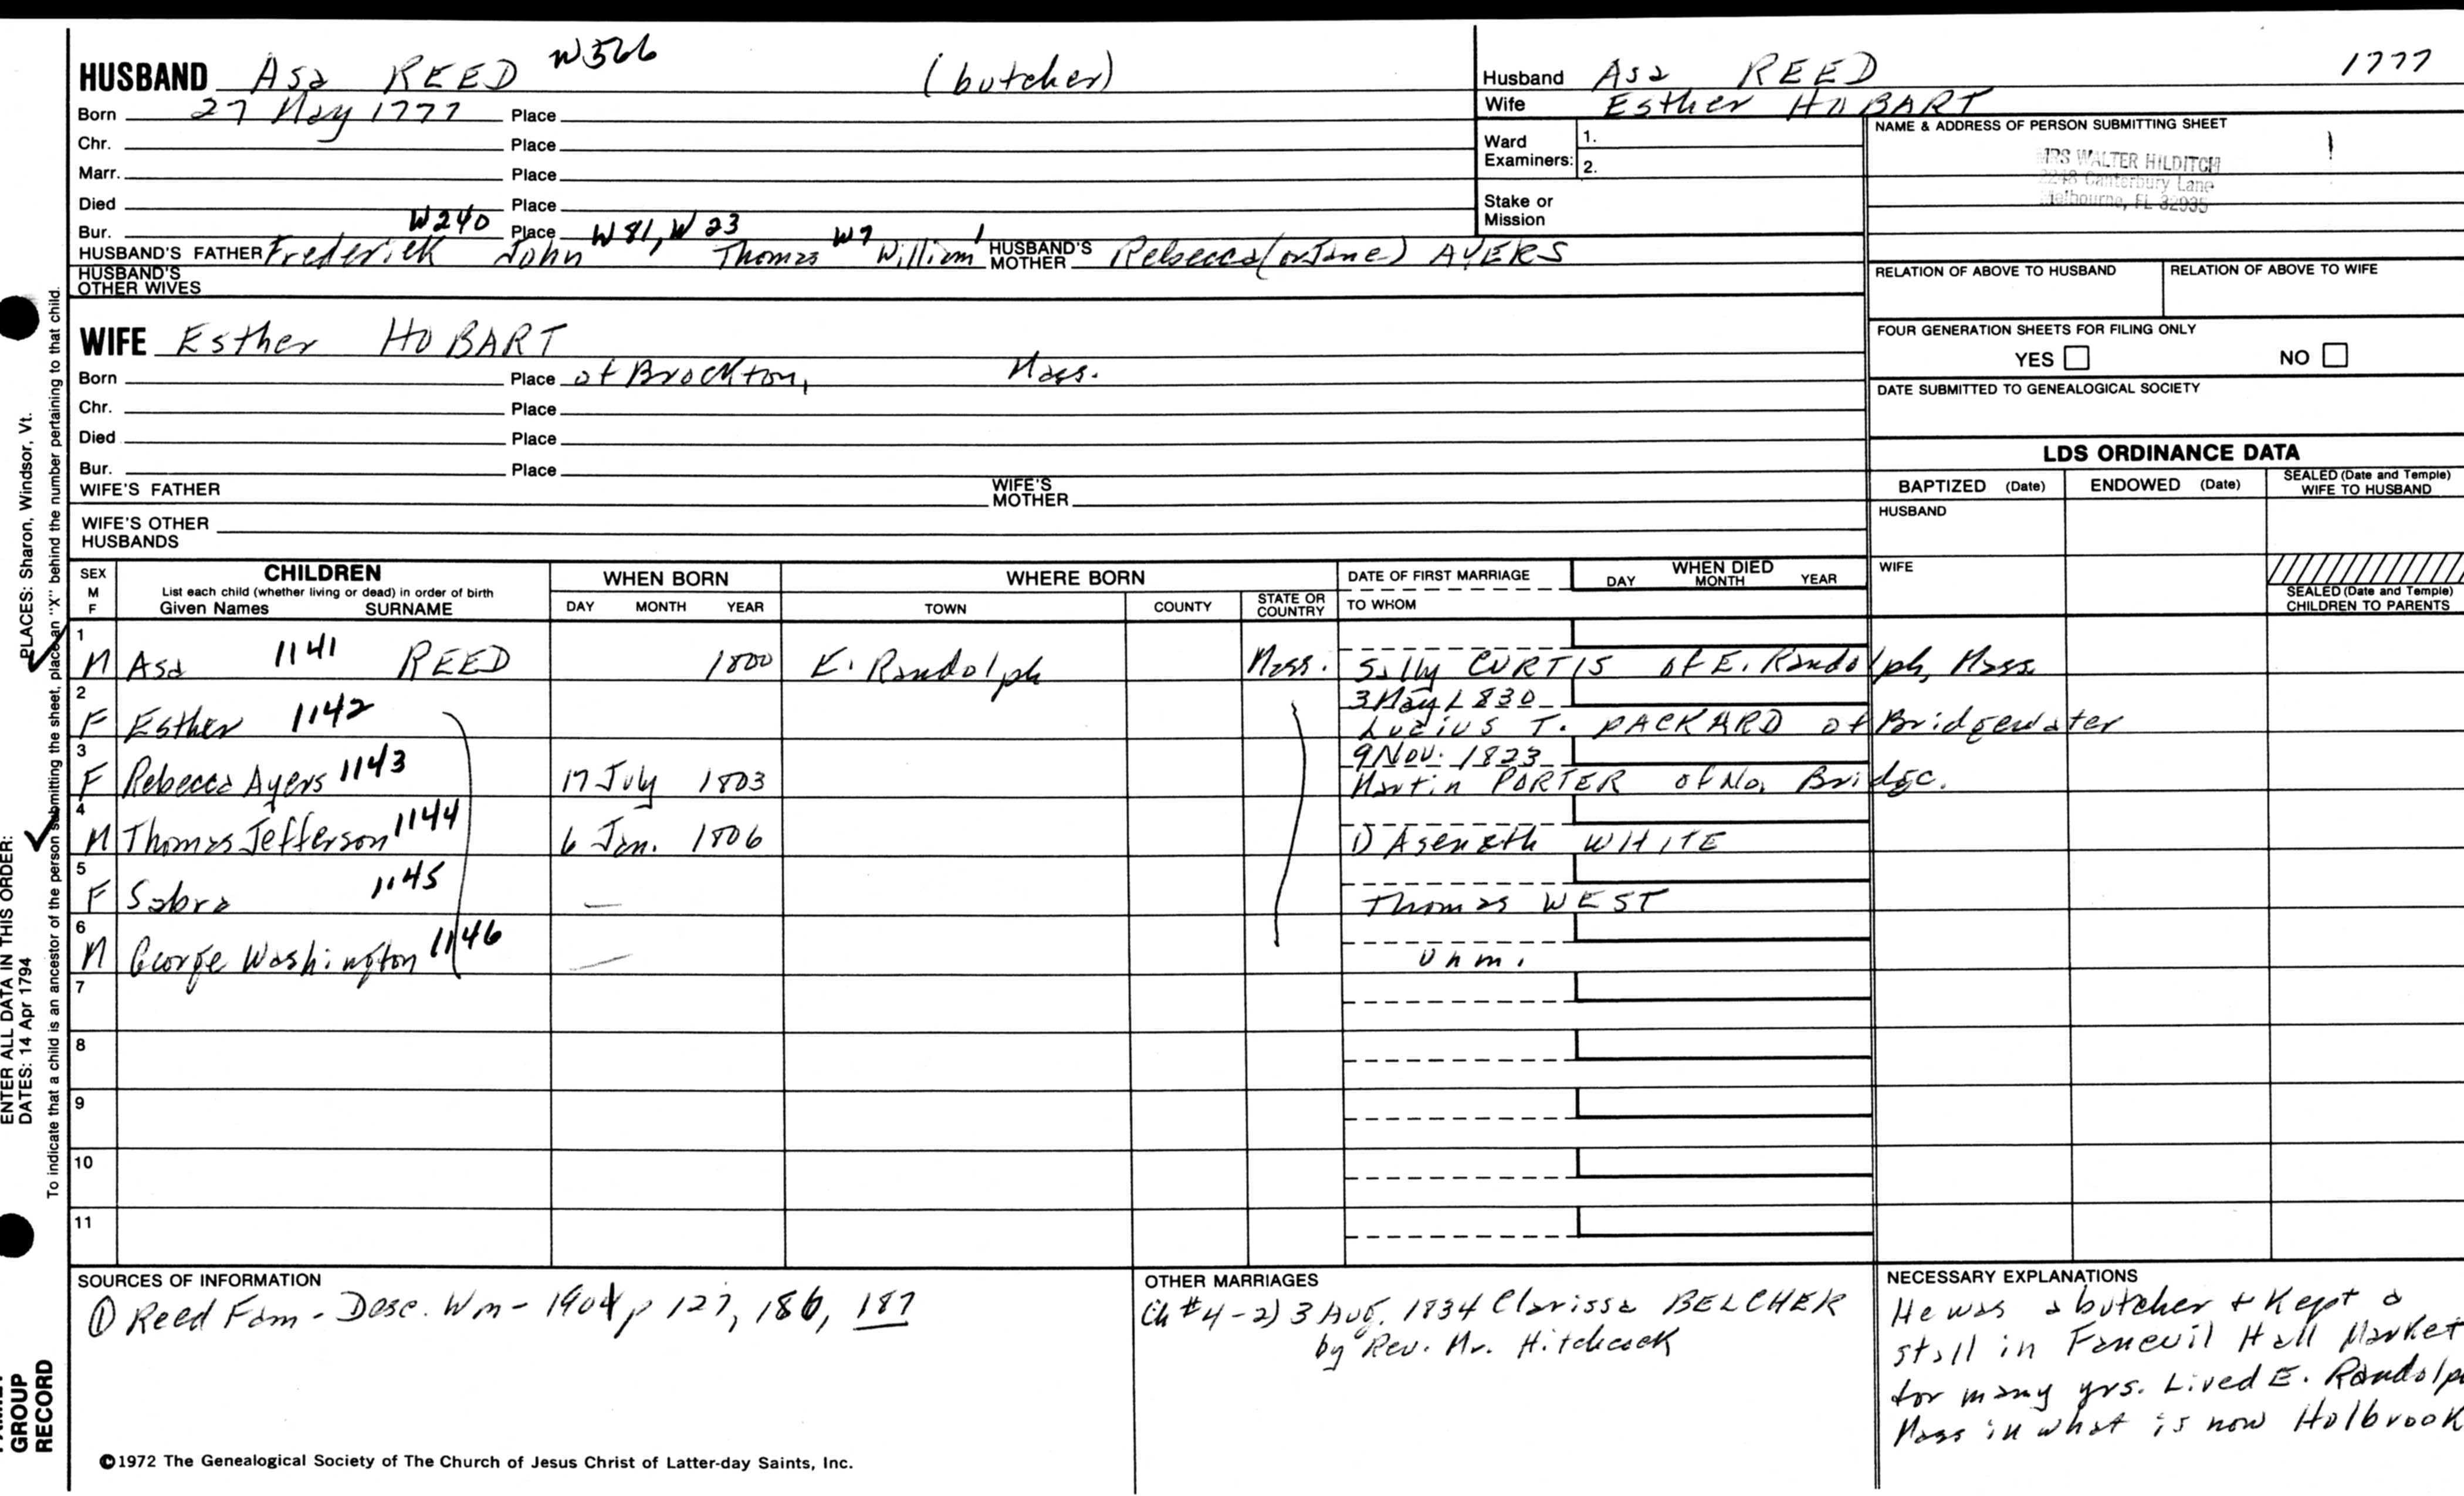 HUSBAND Asa REED W566 (butcher)
Born 27 May 1777 Place
Chr. Place
Marr. Place
Died Place
Bur. Place
W240 W81, W23 W7 1
HUSBAND'S FATHER Frederick John Thomas William HUSBAND'S MOTHER Rebecca (or Jane) AYERS
HUSBAND'S OTHER WIVES
Husband Asa REED 1777
Wife Esther HOBART
Ward Examiners: 1.
2.
Stake or Mission
NAME & ADDRESS OF PERSON SUBMITTING SHEET
MRS WALTER HILDITCH
2248 Canterbury Lane
Melbourne, FL 32935
RELATION OF ABOVE TO HUSBAND RELATION OF ABOVE TO WIFE
FOUR GENERATION SHEETS FOR FILING ONLY
YES NO
DATE SUBMITTED TO GENEALOGICAL SOCIETY
WIFE Esther HOBART
Born Place of Brockton, Mass.
Chr. Place
Died Place
Bur. Place
WIFE'S FATHER WIFE'S MOTHER
WIFE'S OTHER HUSBANDS
LDS ORDINANCE DATA
BAPTIZED (Date) ENDOWED (Date) SEALED (Date and Temple) WIFE TO HUSBAND
HUSBAND
WIFE
SEALED (Date and Temple) CHILDREN TO PARENTS
SEX M F
CHILDREN
List each child (whether living or dead) in order of birth
Given Names SURNAME
WHEN BORN
DAY MONTH YEAR
WHERE BORN
TOWN COUNTY STATE OR COUNTRY
DATE OF FIRST MARRIAGE
TO WHOM
WHEN DIED
DAY MONTH YEAR
1
M Asa 1141 REED 1800 E. Randolph Mass. Sally CURTIS of E. Randolph, Mass.
2 3 May 1830
F Esther 1142 Lucius T. PACKARD of Bridgewater
3 9 Nov. 1823
F Rebecca Ayers 1143 17 July 1803 Martin PORTER of No. Bridge.
4
M Thomas Jefferson 1144 6 Jan. 1806 1) Asenath WHITE
5
F Sabra 1145 — Thomas WEST
6
M George Washington 1146 — Unm.
7
8
9
10
11
SOURCES OF INFORMATION
① Reed Fam - Desc. Wm - 1904 p 127, 186, 187
OTHER MARRIAGES
Ch #4-2) 3 Aug. 1834 Clarissa BELCHER
by Rev. Mr. Hitchcock
NECESSARY EXPLANATIONS
He was a butcher & Kept a
stall in Faneuil Hall Market
for many yrs. Lived E. Randolp
Mass in what is now Holbrook
©1972 The Genealogical Society of The Church of Jesus Christ of Latter-day Saints, Inc.
To indicate that a child is an ancestor of the person submitting the sheet, place an "X" behind the number pertaining to that child.
PLACES: Sharon, Windsor, Vt.
ENTER ALL DATA IN THIS ORDER:
DATES: 14 Apr 1794
GROUP
RECORD